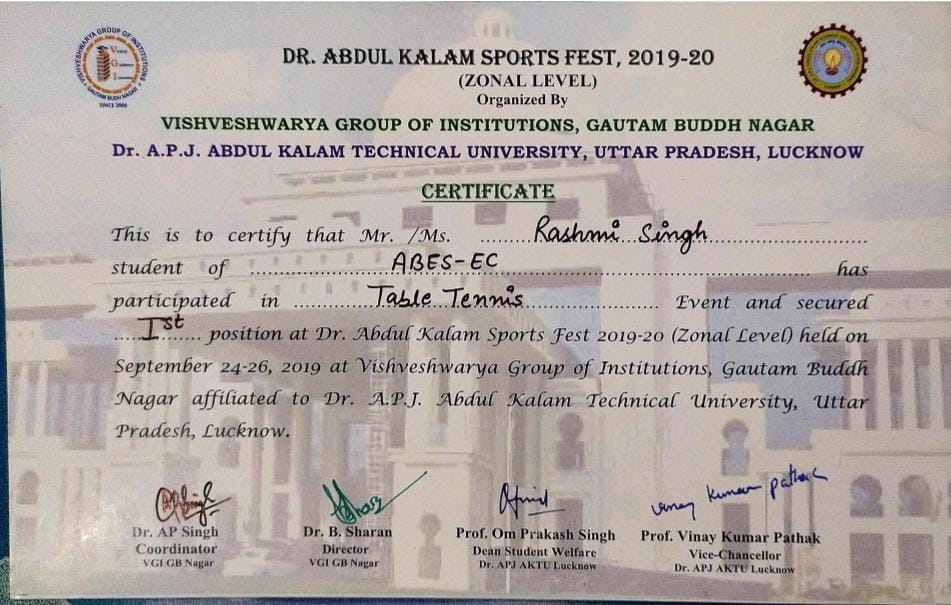 VISHVESHWARYA GROUP OF INSTITUTIONS
V
G
I
GAUTAM BUDH NAGAR
SINCE 2000
DR. ABDUL KALAM SPORTS FEST, 2019-20
(ZONAL LEVEL)
Organized By
VISHVESHWARYA GROUP OF INSTITUTIONS, GAUTAM BUDDH NAGAR
Dr. A.P.J. ABDUL KALAM TECHNICAL UNIVERSITY, UTTAR PRADESH, LUCKNOW
CERTIFICATE
This is to certify that Mr. /Ms. ........Rashmi Singh........
student of ........ABES-EC........ has
participated in ........Table Tennis........ Event and secured
.....Ist..... position at Dr. Abdul Kalam Sports Fest 2019-20 (Zonal Level) held on
September 24-26, 2019 at Vishveshwarya Group of Institutions, Gautam Buddh
Nagar affiliated to Dr. A.P.J. Abdul Kalam Technical University, Uttar
Pradesh, Lucknow.
vinay kumar pathak
Dr. AP Singh
Coordinator
VGI GB Nagar
Dr. B. Sharan
Director
VGI GB Nagar
Prof. Om Prakash Singh
Dean Student Welfare
Dr. APJ AKTU Lucknow
Prof. Vinay Kumar Pathak
Vice-Chancellor
Dr. APJ AKTU Lucknow